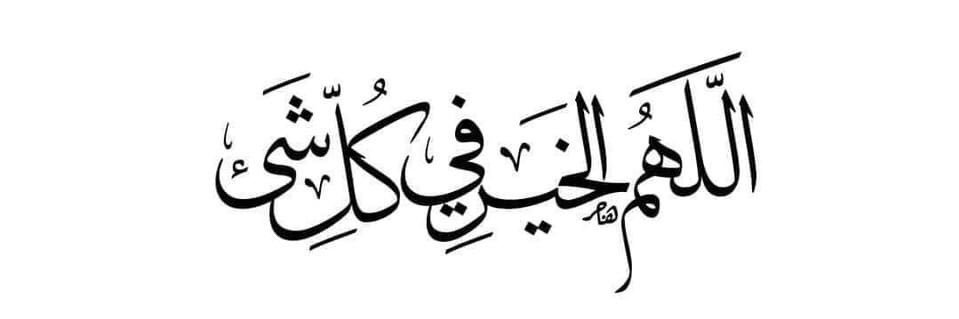 اللَّهُمَّ الخَير فِي كُلِّ شَئ